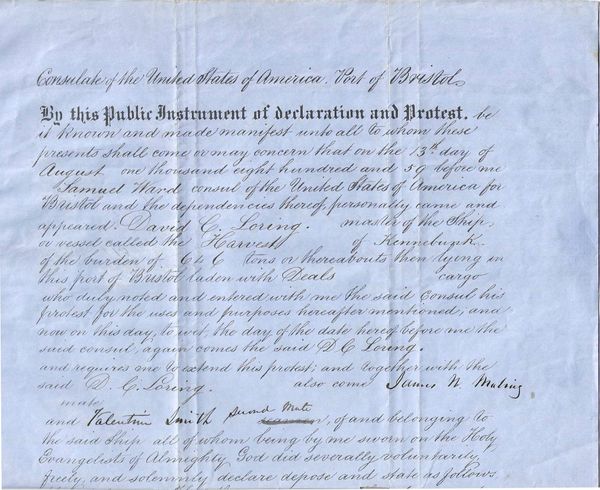 Consulate of the United States of America. Port of Bristol.
By this Public Instrument of declaration and Protest. be
it known and made manifest unto all to whom these
presents shall come or may concern that on the 13th day of
August one thousand eight hundred and 59 before me
Samuel Ward consul of the United States of America for
Bristol and the dependencies thereof, personally came and
appeared. David C. Loring. master of the Ship,
or vessel called the Harvest of Kennebunk.
of the burden of 646 tons or thereabouts then lying in
this port of Bristol laden with Deals cargo
who duly noted and entered with me the said consul his
protest for the uses and purposes hereafter mentioned; and
now on this day, to wit, the day of the date hereof before me the
said consul, again comes the said D C Loring.
and requires me to extend this protest; and together with the
said D. C. Loring. also come James N
mate
and Valentine Smith Second Mate, of and belonging to
the said Ship all of whom being by me sworn on the Holy
Evangelists of Almighty God did severally voluntarily,
freely, and solemnly declare depose and state as follows,